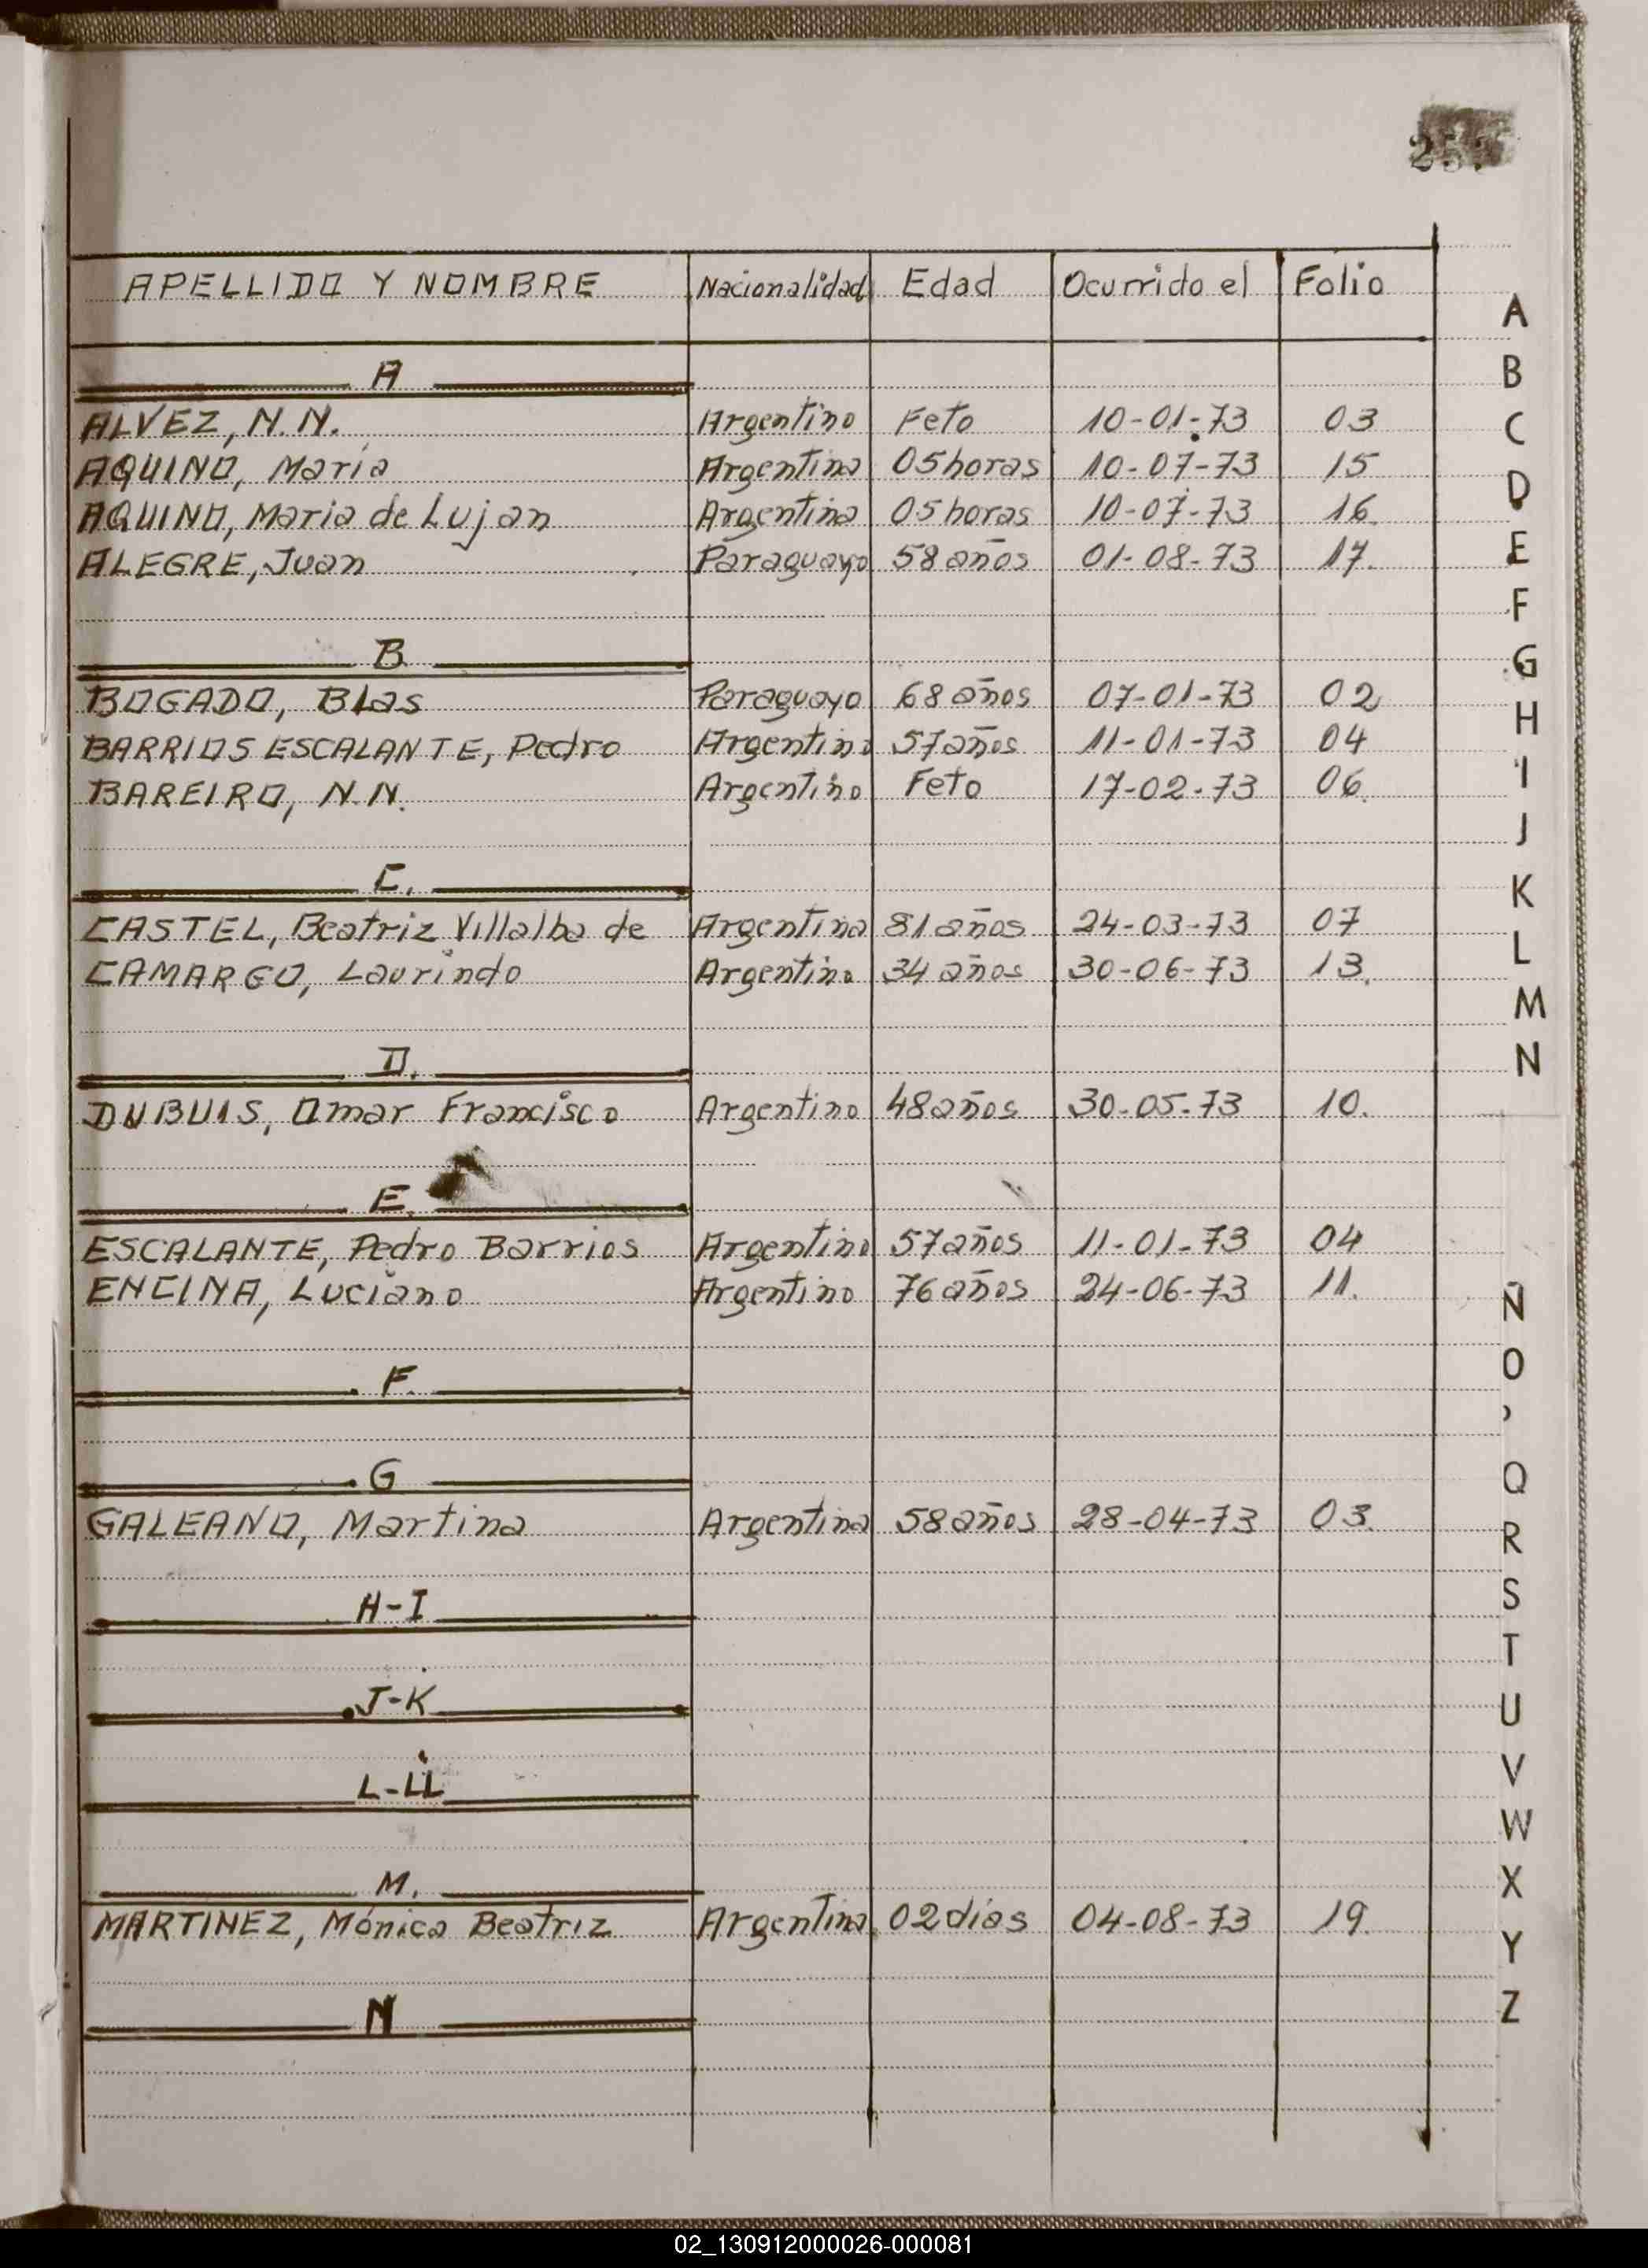 APELLIDO Y NOMBRE Nacionalidad Edad Ocurrido el Folio
A
ALVEZ, N.N. Argentino Feto 10-01-73 03
AQUINO, María Argentina 05 horas 10-07-73 15
AQUINO, María de Lujan Argentina 05 horas 10-07-73 16.
ALEGRE, Juan Paraguayo 58 años 01-08-73 17.
B.
BOGADO, Blas Paraguayo 68 años 07-01-73 02
BARRIOS ESCALANTE, Pedro Argentino 57 años 11-01-73 04
BAREIRO, N.N. Argentino Feto 17-02-73 06.
C.
CASTEL, Beatriz Villalba de Argentina 81 años 24-03-73 07
CAMARGO, Laurindo Argentino 34 años 30-06-73 13.
D.
DUBUIS, Omar Francisco Argentino 48 años 30-05-73 10.
E.
ESCALANTE, Pedro Barrios Argentino 57 años 11-01-73 04
ENCINA, Luciano Argentino 76 años 24-06-73 11.
F.
G
GALEANO, Martina Argentina 58 años 28-04-73 03.
H-I
J-K
L-LL
M.
MARTINEZ, Mónica Beatriz Argentina 02 días 04-08-73 19.
N
A
B
C
D
E
F
G
H
I
J
K
L
M
N
Ñ
O
Q
R
S
T
U
V
W
X
Y
Z
02_130912000026-000081